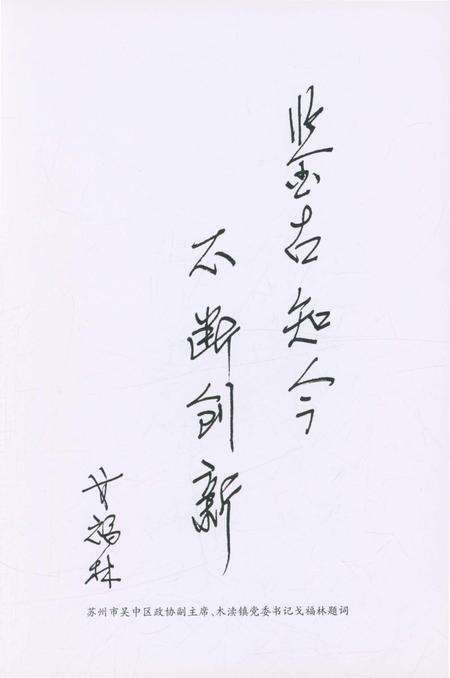 鉴古知今
不断创新
戈福林
苏州市吴中区政协副主席、木渎镇党委书记戈福林题词